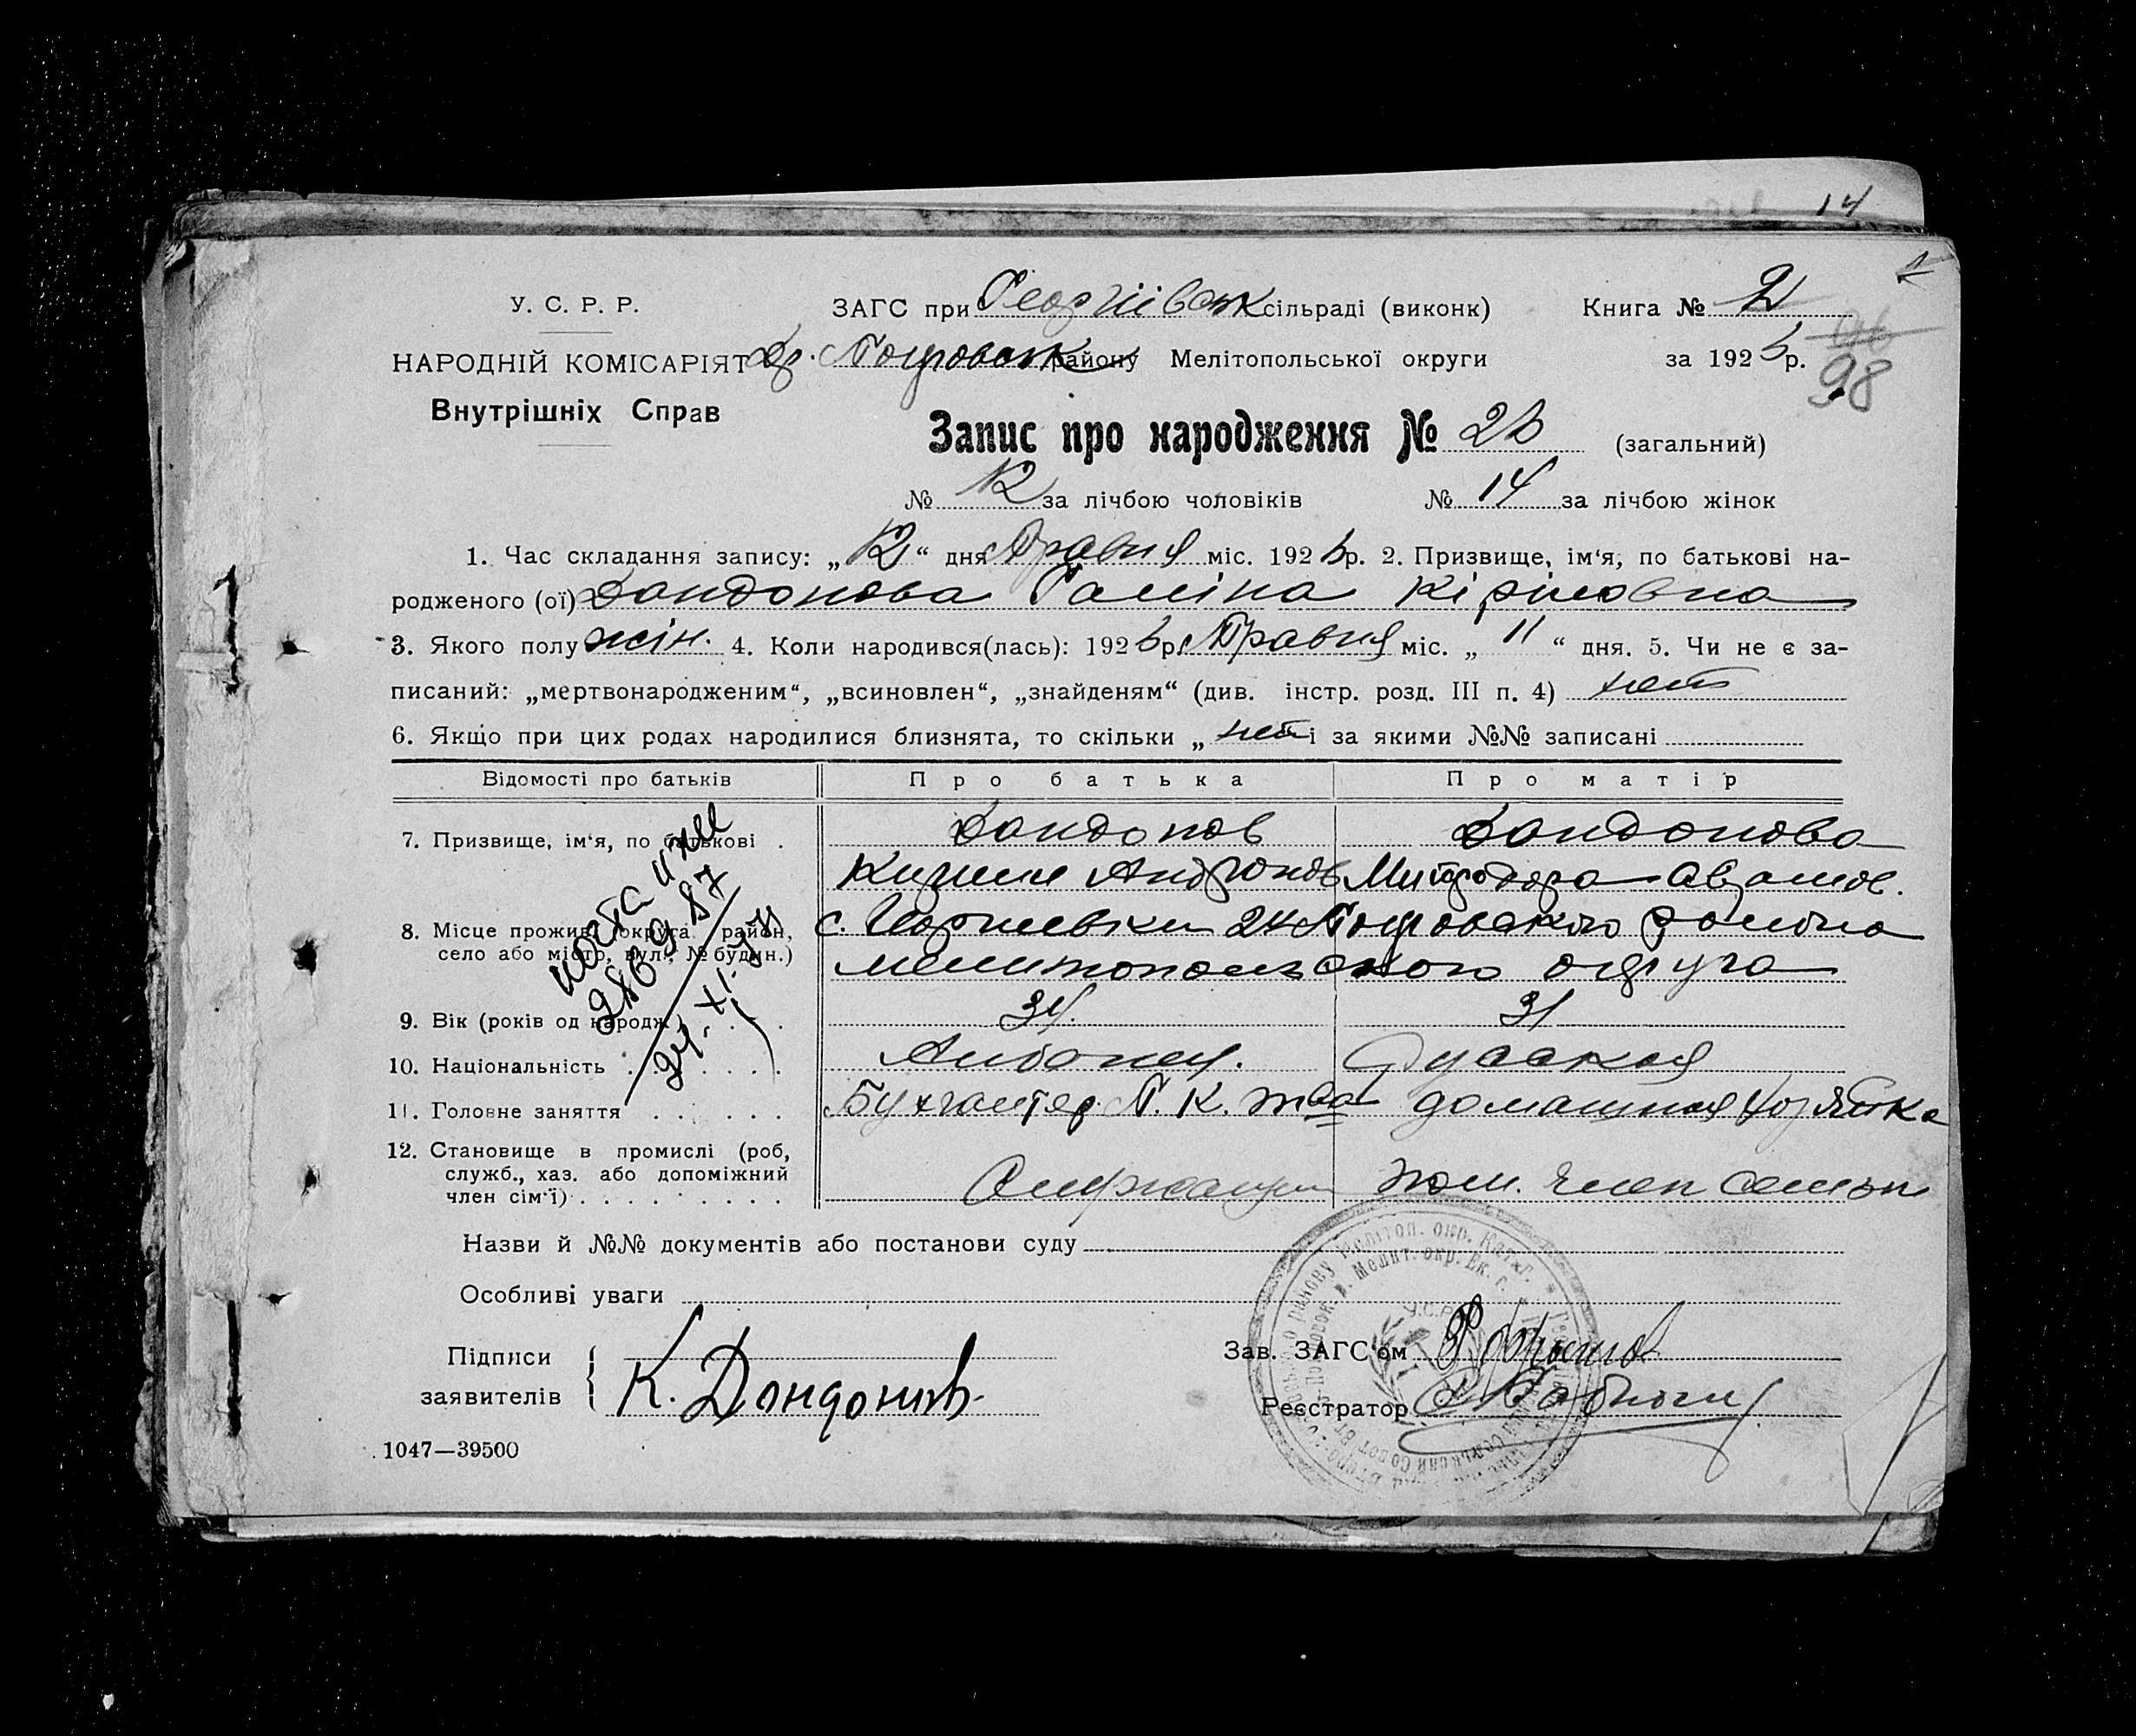 14
1
У. С. Р. Р.
ЗАГС при Георгіївськ сільраді (виконк)
Книга № 2
НАРОДНІЙ КОМІСАРІЯТ
Др. Покровськ району Мелітопольської округи
за 1926 р.
98
Внутрішніх Справ
Запис про народження № 26 (загальний)
№ 12 за лічбою чоловіків № 14 за лічбою жінок
1. Час складання запису: „12“ дня Травня міс. 1926 р. 2. Призвище, ім‘я, по батькові на-
родженого (ої) Дондонова Галіна Кіріловна
3. Якого полу жін. 4. Коли народився(лась): 1926 р. Травня міс. „ 11 “ дня. 5. Чи не є за-
писаний: „мертвонародженим“, „всиновлен“, „знайденям“ (див. інстр. розд. III п. 4) нет
6. Якщо при цих родах народилися близнята, то скільки „ нет і за якими №№ записані
Відомості про батьків Про батька Про матір
7. Призвище, ім‘я, по батькові .
Дондонов Дондонова
Кирилл Андронов Митродора
8. Місце прожив. (округа район,
село або місто, вул., № будин.)
с. Георгиевки 2 Покровского района
мелитопольского округа
9. Вік (років од народж.) . . . . 34. 31
10. Національність . . . . . . . Албанец. Русская
11. Головне заняття . . . . . . Бухгалтер П. К. Т-ва домашняя хозяйка
12. Становище в промислі (роб,
служб., хаз. або допоміжний
член сім‘ї) . . . . . . . . . Служащий пом. член семьи
28639 87
24. XI.
Назви й №№ документів або постанови суду
Особливі уваги
Підписи
заявителів
К. Дондонов.
Зав. ЗАГС‘ом
Реєстратор
1047—39500
У.С.Р.Р.